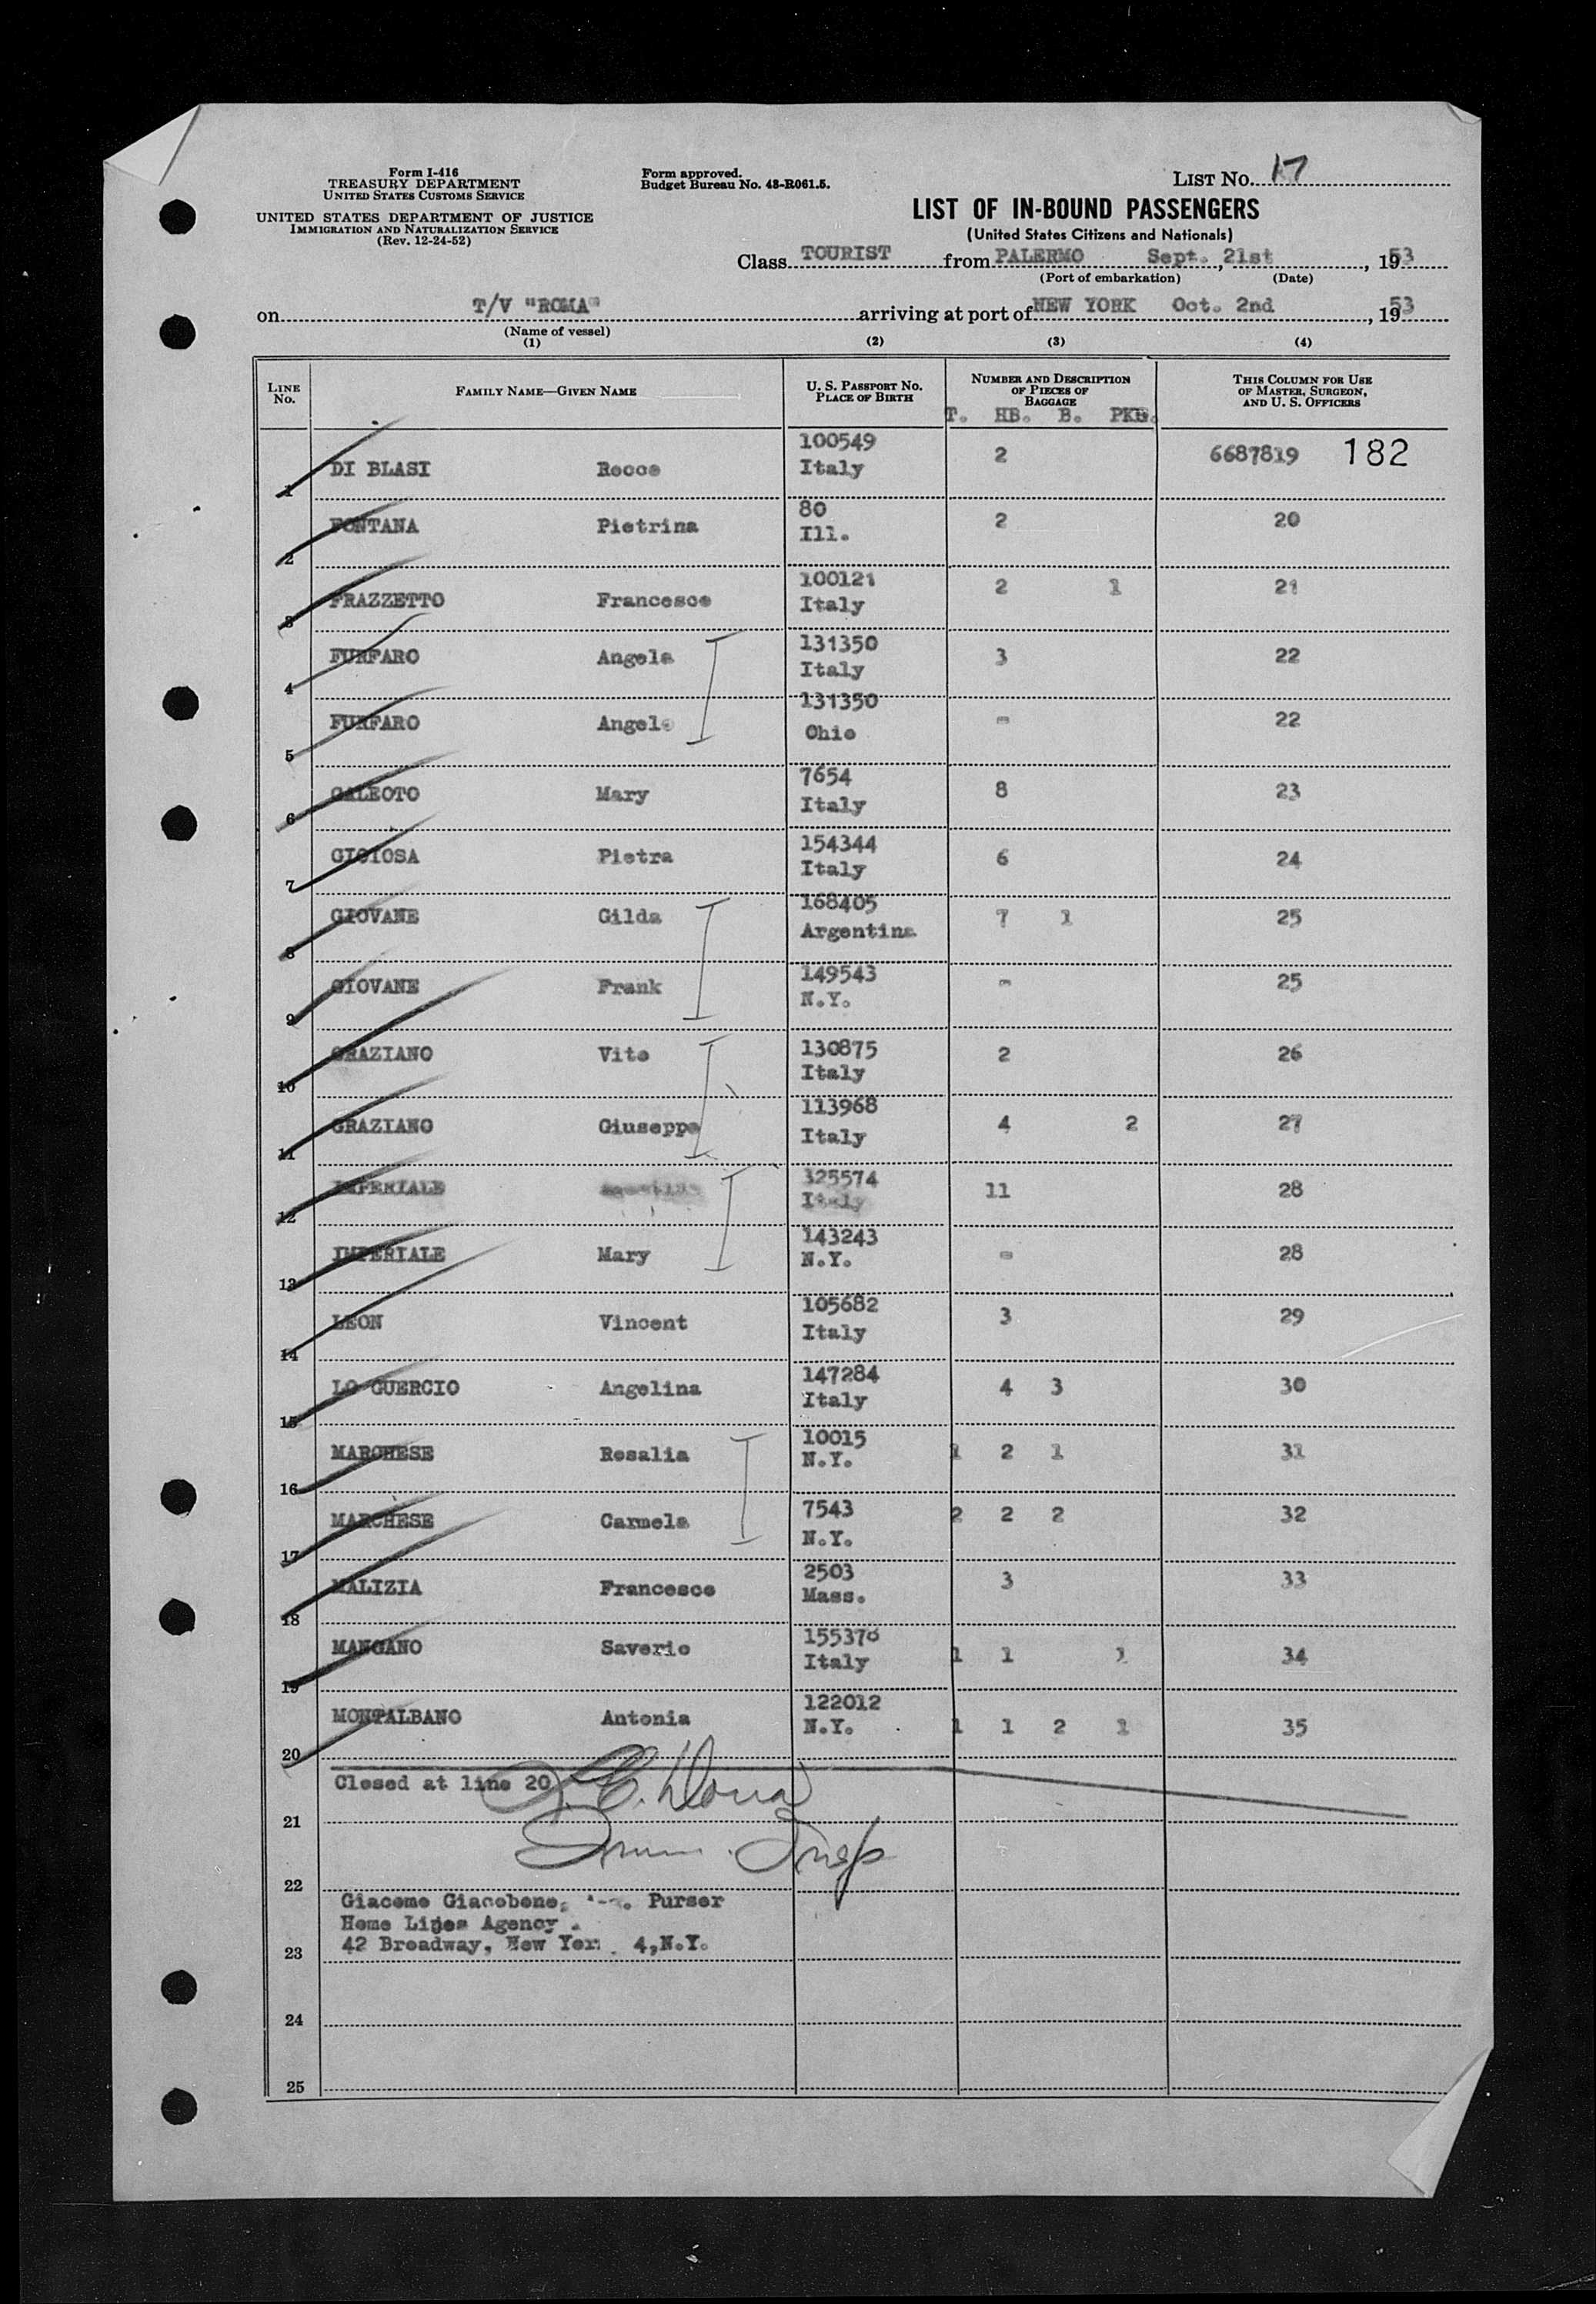 Form I-416
TREASURY DEPARTMENT
UNITED STATES CUSTOMS SERVICE
UNITED STATES DEPARTMENT OF JUSTICE
IMMIGRATION AND NATURALIZATION SERVICE
(Rev. 12-24-52)
Form approved.
Budget Bureau No. 43-R061.5.
LIST NO. 17
LIST OF IN-BOUND PASSENGERS
(United States Citizens and Nationals)
Class TOURIST from PALERMO Sept. 21st, 1953
(Port of embarkation) (Date)
on T/V "ROMA" arriving at port of NEW YORK Oct. 2nd, 1953
(Name of vessel)
(1) (2) (3) (4)
LINE No. FAMILY NAME—GIVEN NAME U. S. PASSPORT NO. PLACE OF BIRTH NUMBER AND DESCRIPTION OF PIECES OF BAGGAGE THIS COLUMN FOR USE OF MASTER, SURGEON, AND U. S. OFFICERS
T. HB. B. PKG.
1 DI BLASI Rocco 100549 Italy 2 6687819 182
2 FONTANA Pietrina 80 Ill. 2 20
3 FRAZZETTO Francesco 100121 Italy 2 1 21
4 FURFARO Angela 131350 Italy 3 22
5 FURFARO Angelo 131350 Ohio - 22
6 GALEOTO Mary 7654 Italy 8 23
7 GIOIOSA Pietra 154344 Italy 6 24
8 GIOVANE Gilda 168405 Argentina 7 1 25
9 GIOVANE Frank 149543 N.Y. - 25
10 GRAZIANO Vito 130875 Italy 2 26
11 GRAZIANO Giuseppe 113968 Italy 4 2 27
12 IMPERIALE 325574 Italy 11 28
13 IMPERIALE Mary 143243 N.Y. - 28
14 LEON Vincent 105682 Italy 3 29
15 LO GUERCIO Angelina 147284 Italy 4 3 30
16 MARCHESE Rosalia 10015 N.Y. 1 2 1 31
17 MARCHESE Carmela 7543 N.Y. 2 2 2 32
18 MALIZIA Francesco 2503 Mass. 3 33
19 MANGANO Saverio 155376 Italy 1 1 1 34
20 MONTALBANO Antonia 122012 N.Y. 1 1 2 1 35
Closed at line 20
21
Imm. Insp
22
Giacomo Giacobone, Purser
Home Lines Agency
23 42 Broadway, New York 4, N.Y.
24
25